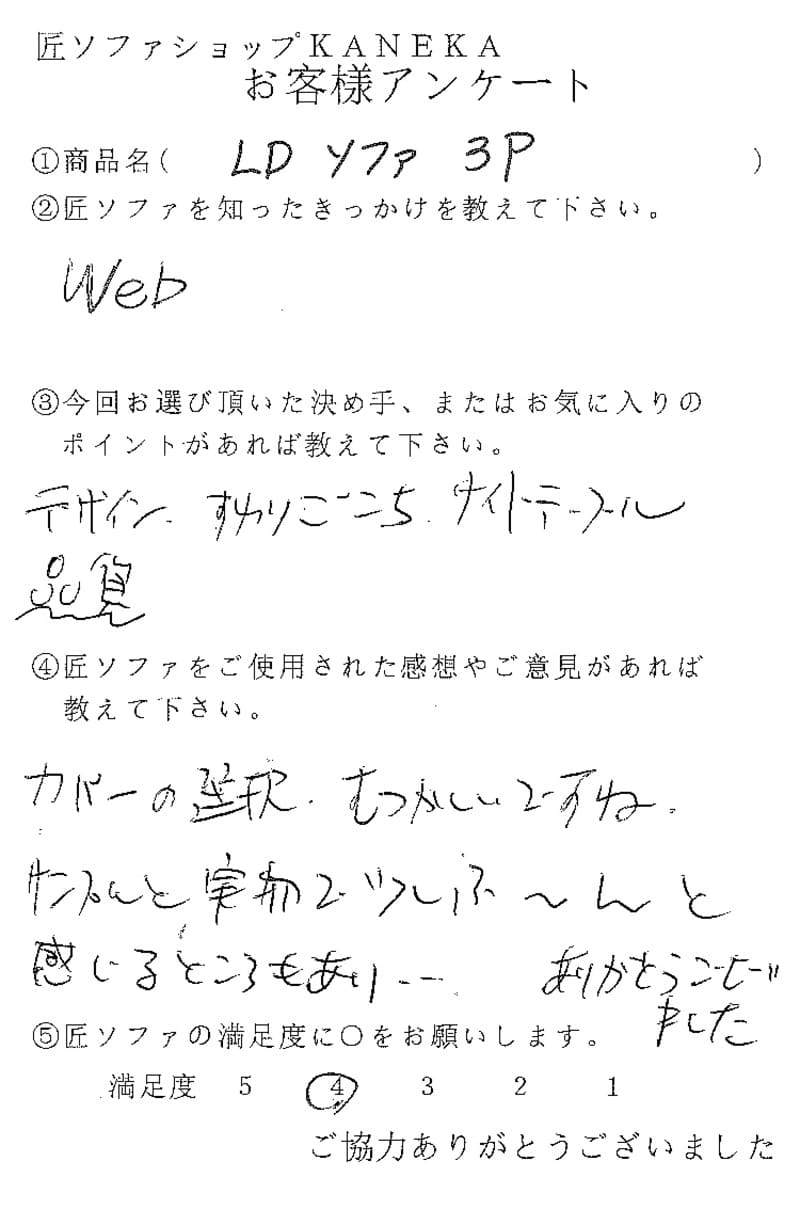 匠ソファショップKANEKA
お客様アンケート
①商品名( LD ソファ 3P )
②匠ソファを知ったきっかけを教えて下さい。
Web
③今回お選び頂いた決め手、またはお気に入りの
ポイントがあれば教えて下さい。
デザイン、すわりごこち、サイドテーブル
品質
④匠ソファをご使用された感想やご意見があれば
教えて下さい。
カバーの選択、むつかしいですね。
サンプルと実物で
〜んと
感じるところもあり… ありがとうございました
⑤匠ソファの満足度に○をお願いします。
満足度 5 4 3 2 1
ご協力ありがとうございました